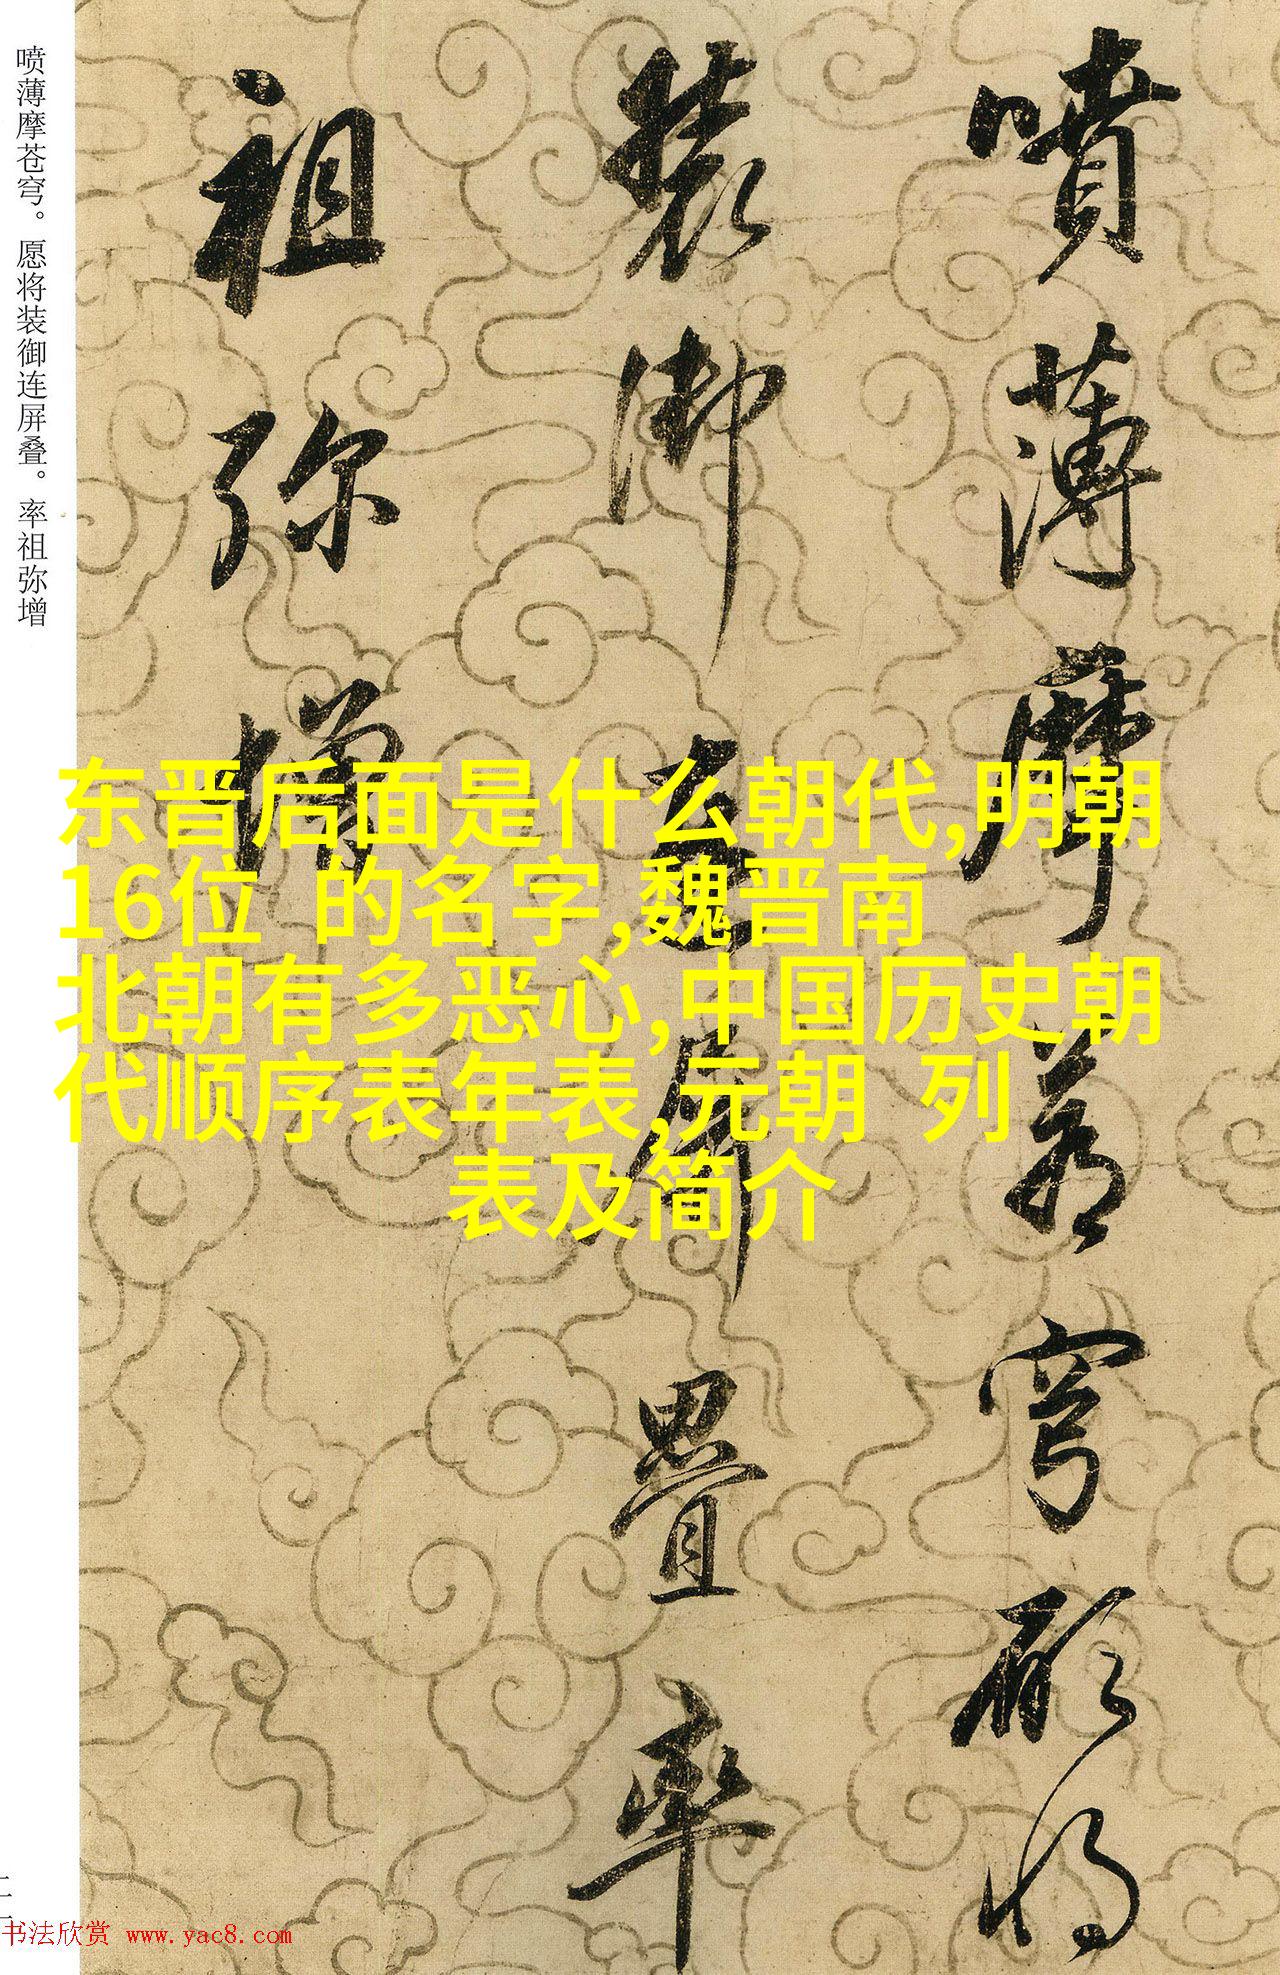 喷薄摩苍穹。愿将装御连屏叠。率祖弥增
噴薄摩蒼穹願將
裝御連屏疊率
祖弥增
东晋后面是什么朝代,明朝
16位 的名字,魏晋南
北朝有多恶心,中国历史朝
代顺序表年表,元朝 列
表及简介
书法欣赏 www.yac8.com